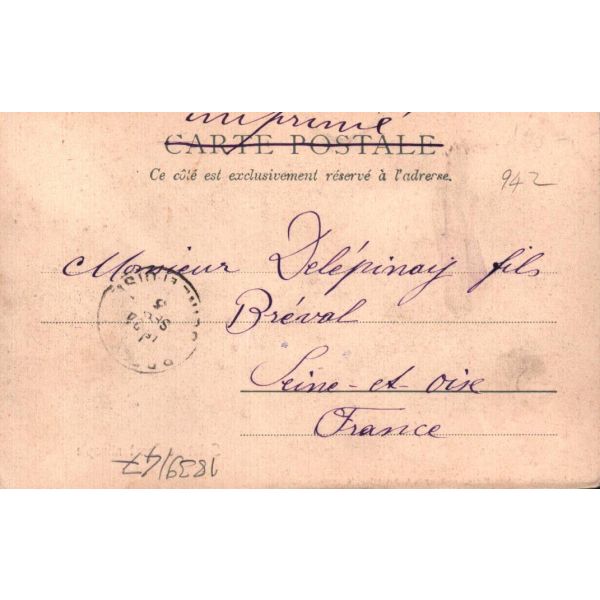 imprimé
CARTE POSTALE
Ce côté est exclusivement réservé à l'adresse.
942
Monsieur Delépinay fils
Bréval
Seine-et-oise
France
1839/47